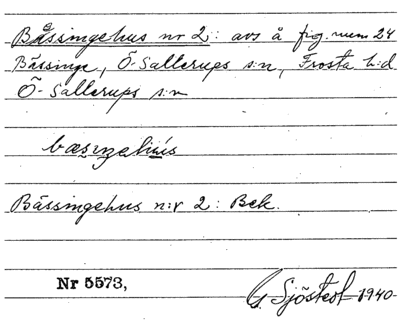 Bässingehus nr 2: avs å fig.rum 24
Bässinge, Ö-Sallerups s:n, Frosta h:d
Ö-Sallerups s:n
Bässingehus n:r 2: Bek.
Nr 5573,
G. Sjöstedt 1940-